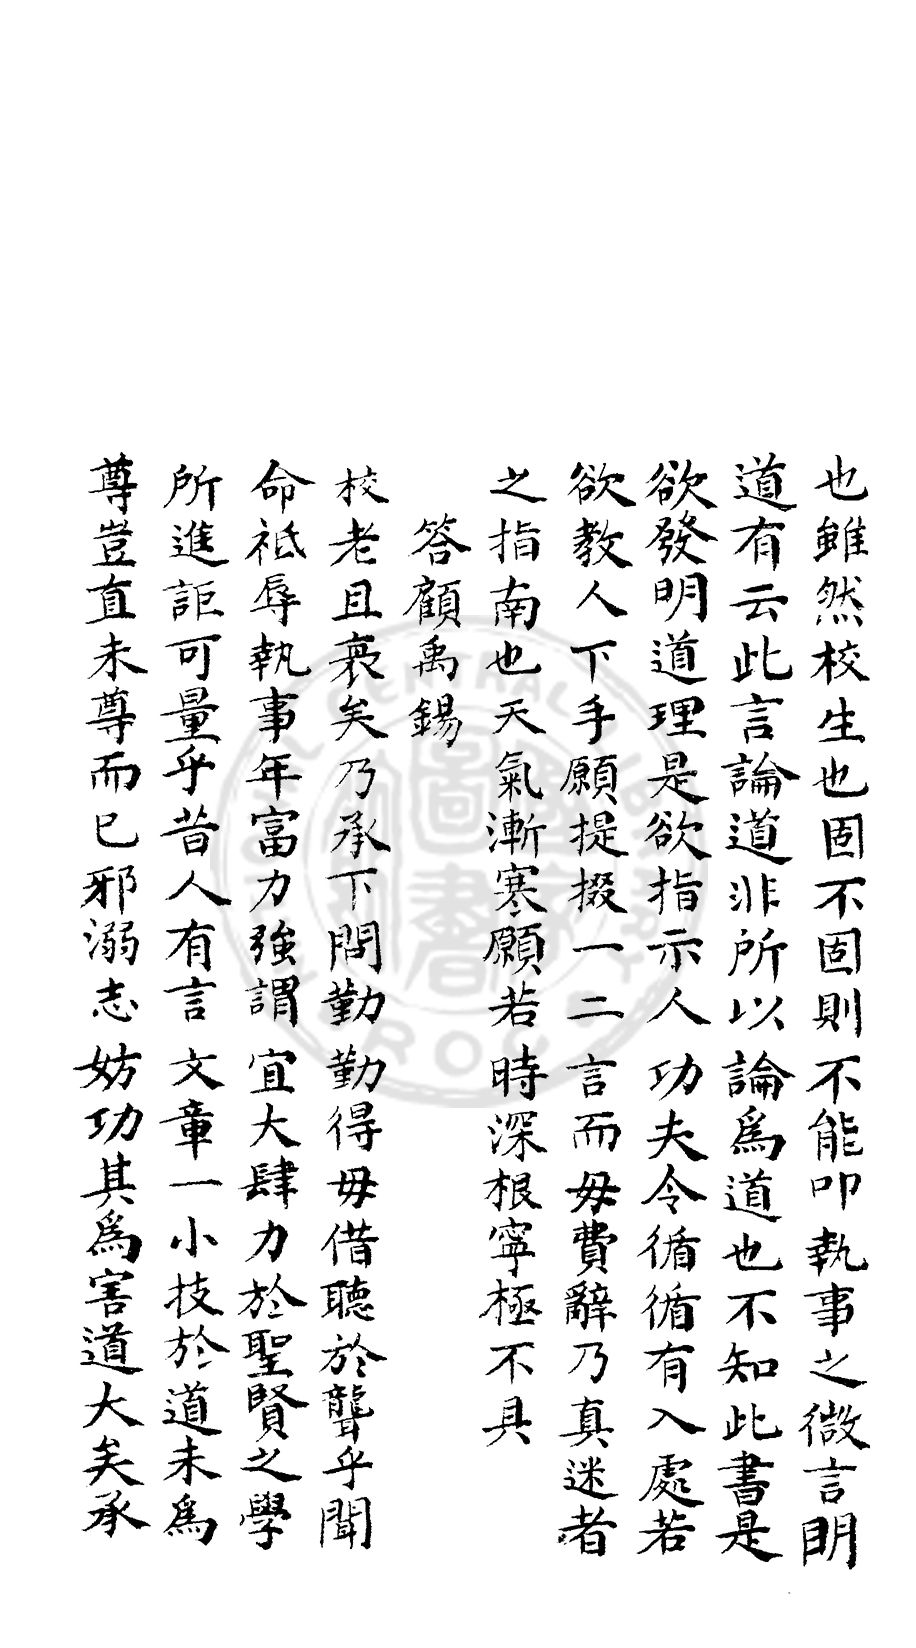 也雖然校生也固不固則不能叩執事之微言明
道有云此言論道非所以論為道也不知此書是
欲發明道理是欲指示人功夫令循循有入處若
欲教人下手願提掇一二言而毋費辭乃真迷者
之指南也天氣漸寒願若時深根寧極不具
答顧禹錫
校老且衰矣乃承下問勤勤得毋借聽於聾乎聞
命祗辱執事年富力強謂宜大肆力於聖賢之學
所進詎可量乎昔人有言文章一小技於道未為
尊豈直未尊而已邪溺志妨功其為害道大矣承